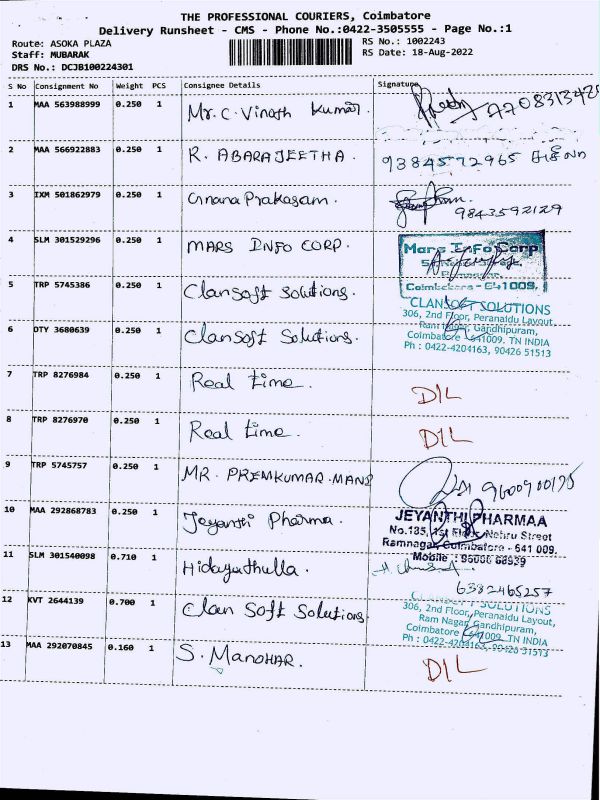 THE PROFESSIONAL COURIERS, Coimbatore
Delivery Runsheet - CMS - Phone No.:0422-3505555 - Page No.:1
Route: ASOKA PLAZA RS No.: 1002243
Staff: MUBARAK RS Date: 18-Aug-2022
DRS No.: DCJB100224301
S No Consignment No Weight PCS Consignee Details Signature
1 MAA 563988999 0.250 1 Mr. C. Vinoth Kumar.
2 MAA 566922883 0.250 1 R. ABARAJEETHA. 9384572965
3 IXM 501862979 0.250 1 Gnana Prakasam. 9843592129
4 SLM 301529296 0.250 1 MARS INFO CORP. Mars InFo Corp
Coimbatore - 641009.
5 TRP 5745386 0.250 1 Clansoft solutions. CLANSOFT SOLUTIONS
306, 2nd Floor, Peranaidu Layout,
6 DTY 3680639 0.250 1 Clansoft Solutions. Ram Nagar, Gandhipuram,
Coimbatore 641009. TN INDIA
Ph : 0422-4204163, 90426 51513
7 TRP 8276984 0.250 1 Real time. DIL
8 TRP 8276970 0.250 1 Real time. DIL
9 TRP 5745757 0.250 1 MR. PREMKUMAR.MANS
10 MAA 292868783 0.250 1 Jeyanthi Pharma. JEYANTHI PHARMAA
No.185, 1st Floor, Nehru Street
Ramnagar, Coimbatore - 641 009.
11 SLM 301540098 0.710 1 Hidayathulla. Mobile :
6382465257
12 KVT 2644139 0.700 1 Clan Soft Solutions. CLANSOFT SOLUTIONS
306, 2nd Floor, Peranaidu Layout,
Ram Nagar, Gandhipuram,
Coimbatore 641009. TN INDIA
Ph : 0422-4204163, 90426 51513
13 MAA 292070845 0.160 1 S. MANOHAR. DIL